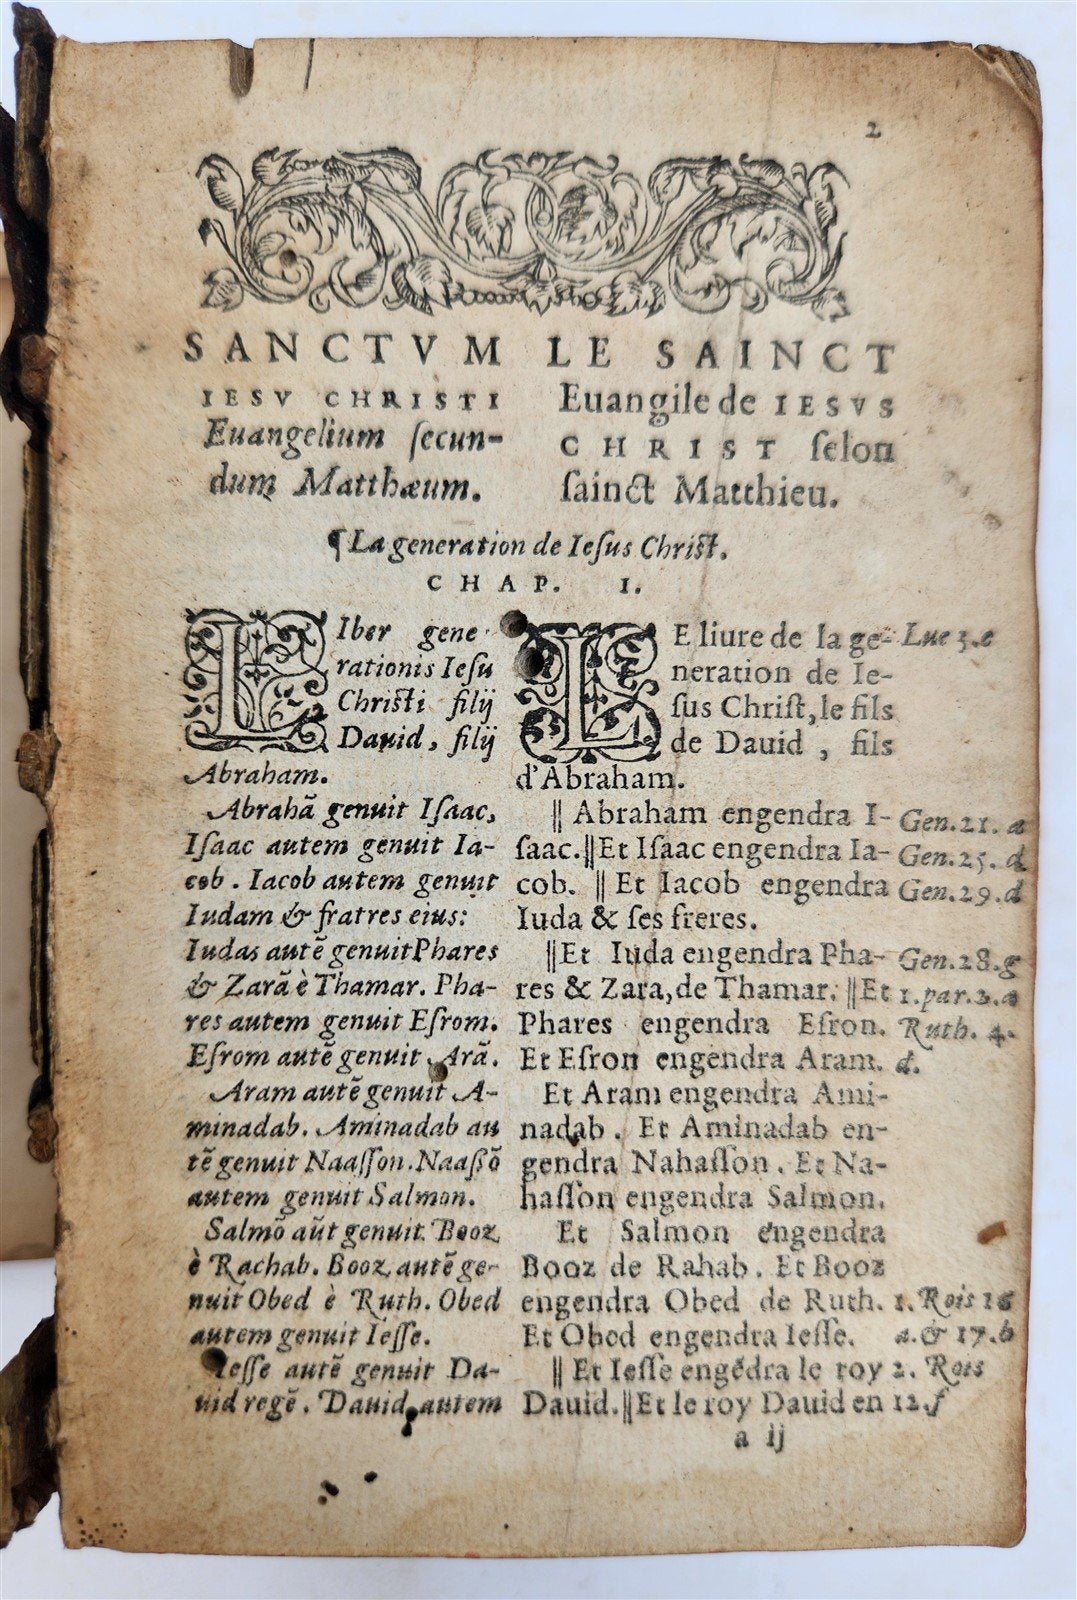 2
SANCTVM
IESV CHRISTI
Euangelium ſecun-
dum Matthæum.
LE SAINCT
Euangile de IESVS
CHRIST ſelon
ſainct Matthieu.
¶ La generation de Ieſus Chriſt.
CHAP. I.
LIber gene
rationis Ieſu
Chriſti filij
Dauid, filij
Abraham.
Abrahã genuit Iſaac,
Iſaac autem genuit Ia-
cob. Iacob autem genuit
Iudam & fratres eius:
Iudas autẽ genuit Phares
& Zarã è Thamar. Pha-
res autem genuit Eſrom.
Eſrom autẽ genuit Arã.
Aram autẽ genuit A-
minadab. Aminadab au
tẽ genuit Naaſſon. Naaſſõ
autem genuit Salmon.
Salmõ aũt genuit Booz
è Rachab. Booz autẽ ge-
nuit Obed è Ruth. Obed
autem genuit Ieſſe.
Ieſſe autẽ genuit Da-
uid regẽ. Dauid autem
LE liure de la ge-
neration de Ie-
ſus Chriſt, le fils
de Dauid , fils
d'Abraham.
‖ Abraham engendra I-
ſaac.‖Et Iſaac engendra Ia-
cob. ‖ Et Iacob engendra
Iuda & ſes freres.
‖Et Iuda engendra Pha-
res & Zara, de Thamar. ‖Et
Phares engendra Eſron.
Et Eſron engendra Aram.
Et Aram engendra Ami-
nadab. Et Aminadab en-
gendra Nahaſſon. Et Na-
haſſon engendra Salmon.
Et Salmon engendra
Booz de Rahab. Et Booz
engendra Obed de Ruth.
Et Obed engendra Ieſſe.
‖ Et Ieſſe engẽdra le roy
Dauid.‖Et le roy Dauid en
Luc 3.e
Gen.21. a
Gen.25. d
Gen.29.d
Gen.28.g
1.par.2.a
Ruth. 4.
d.
1. Rois 16
a.& 17.b
2. Rois
12.f
a ij